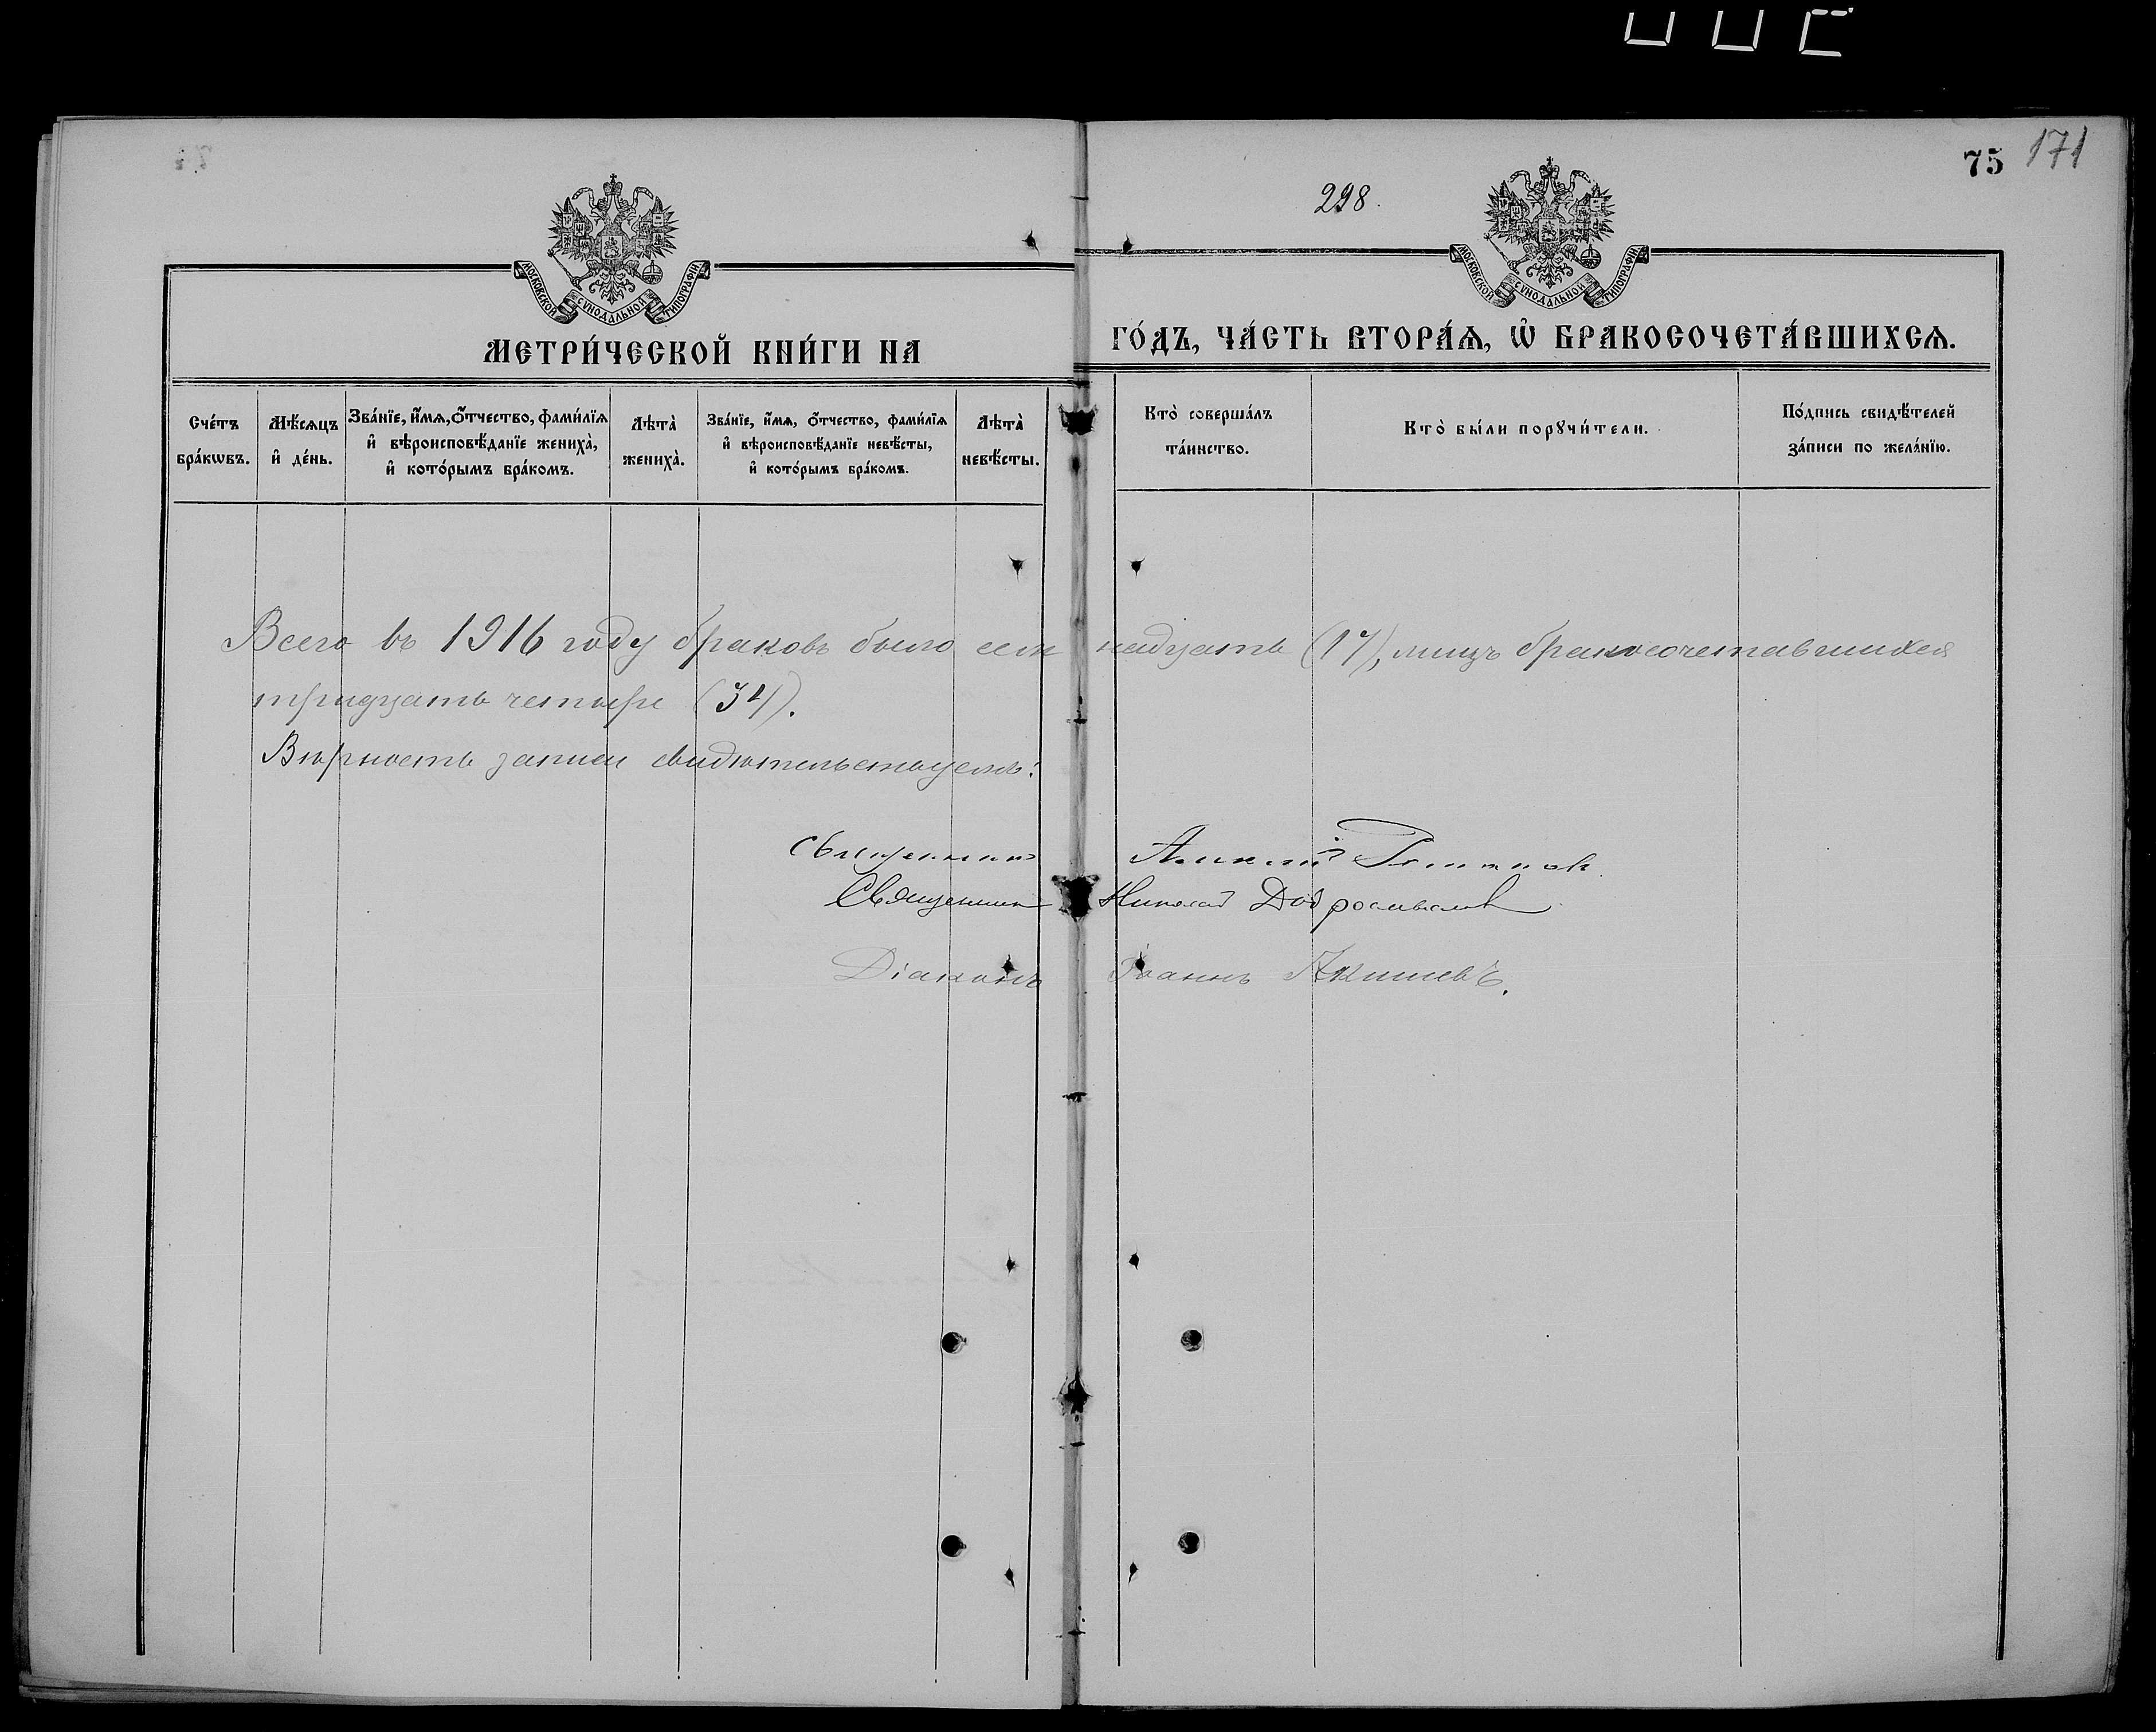 75 171
298.
МОСКОВСКОЙ СѴНОДАЛЬНОЙ ТИПОГРАФІИ
МОСКОВСКОЙ СѴНОДАЛЬНОЙ ТИПОГРАФІИ
МЕТРИ́ЧЕСКОЙ КНИ́ГИ НА ГО́ДЪ, ЧА́СТЬ ВТОРА́Ѧ, Ѡ҆ БРАКОСОЧЕТА́ВШИХСѦ.
Сче́тъ бра́кѡвъ.
Мѣ́сѧцъ и҆ де́нь.
Зва́нїе, и҆́мѧ, Ѻ҆́тчество, фами́лїѧ и҆ вѣроисповѣ́данїе жениха̀, и҆ кото́рымъ бра́комъ.
Лѣта̀ жениха̀.
Зва́нїе, и҆́мѧ, ѻ҆́тчество, фами́лїѧ и҆ вѣроисповѣ́данїе невѣ́сты, и҆ кото́рымъ бра́комъ.
Лѣта̀ невѣ́сты.
Кто̀ соверша́лъ та́инство.
Кто̀ бы́ли порꙋчи́тели.
По́дпись свидѣ́телей за́писи по жела́нїю.
Всего въ 1916 году браковъ было семнадцать (17), лицъ бракосочетавшихся
тридцать четыре (34).
Вѣрность записи свидѣтельствуемъ:
Священникъ
Священник Николай Добросмыслов
Діаконъ Іоаннъ